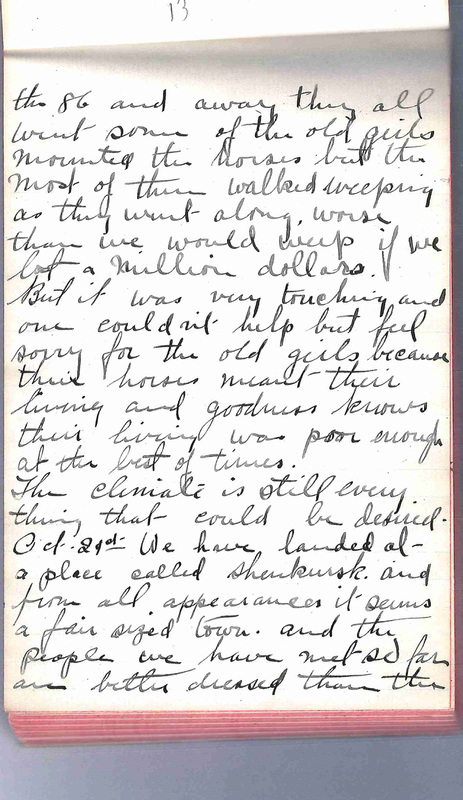 13
the 86 and away they all
went some of the old girls
mounted the horses but the
most of them walked weeping
as they went along, worse
than we would weep if we
lost a million dollars.
But it was very touching and
one couldn't help but feel
sorry for the old girls because
their horses meant their
living and goodness knows
their living was poor enough
at the best of times.
The climate is still every
thing that could be desired.
Oct. We have landed at
a place called Shenkursk. and
from all appearances it seems
a fair sized town. and the
people we have met so far
are better dressed than the